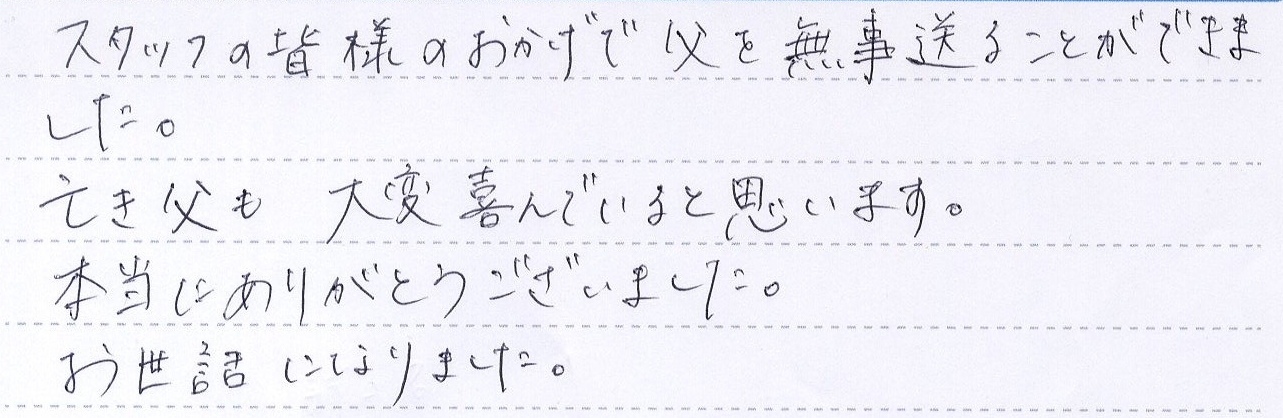 スタッフの皆様のおかげで父を無事送ることができま
した。
亡き父も大変喜んでいると思います。
本当にありがとうございました。
お世話になりました。